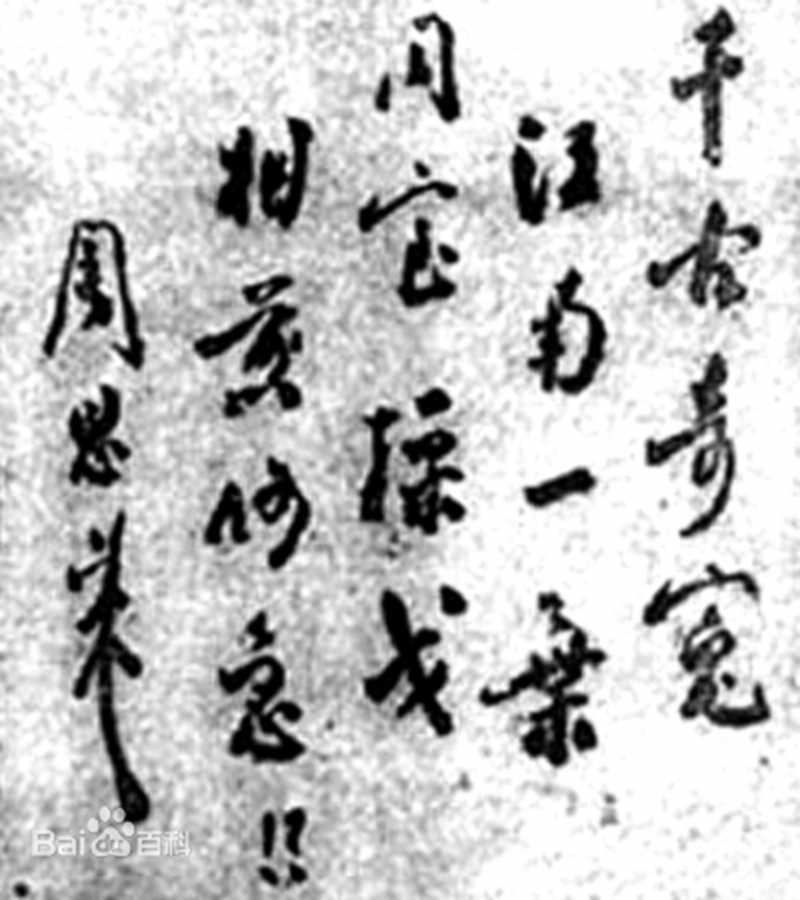 千古奇冤
江南一葉
同室操戈
相煎何急！！
周恩来
Bai百科